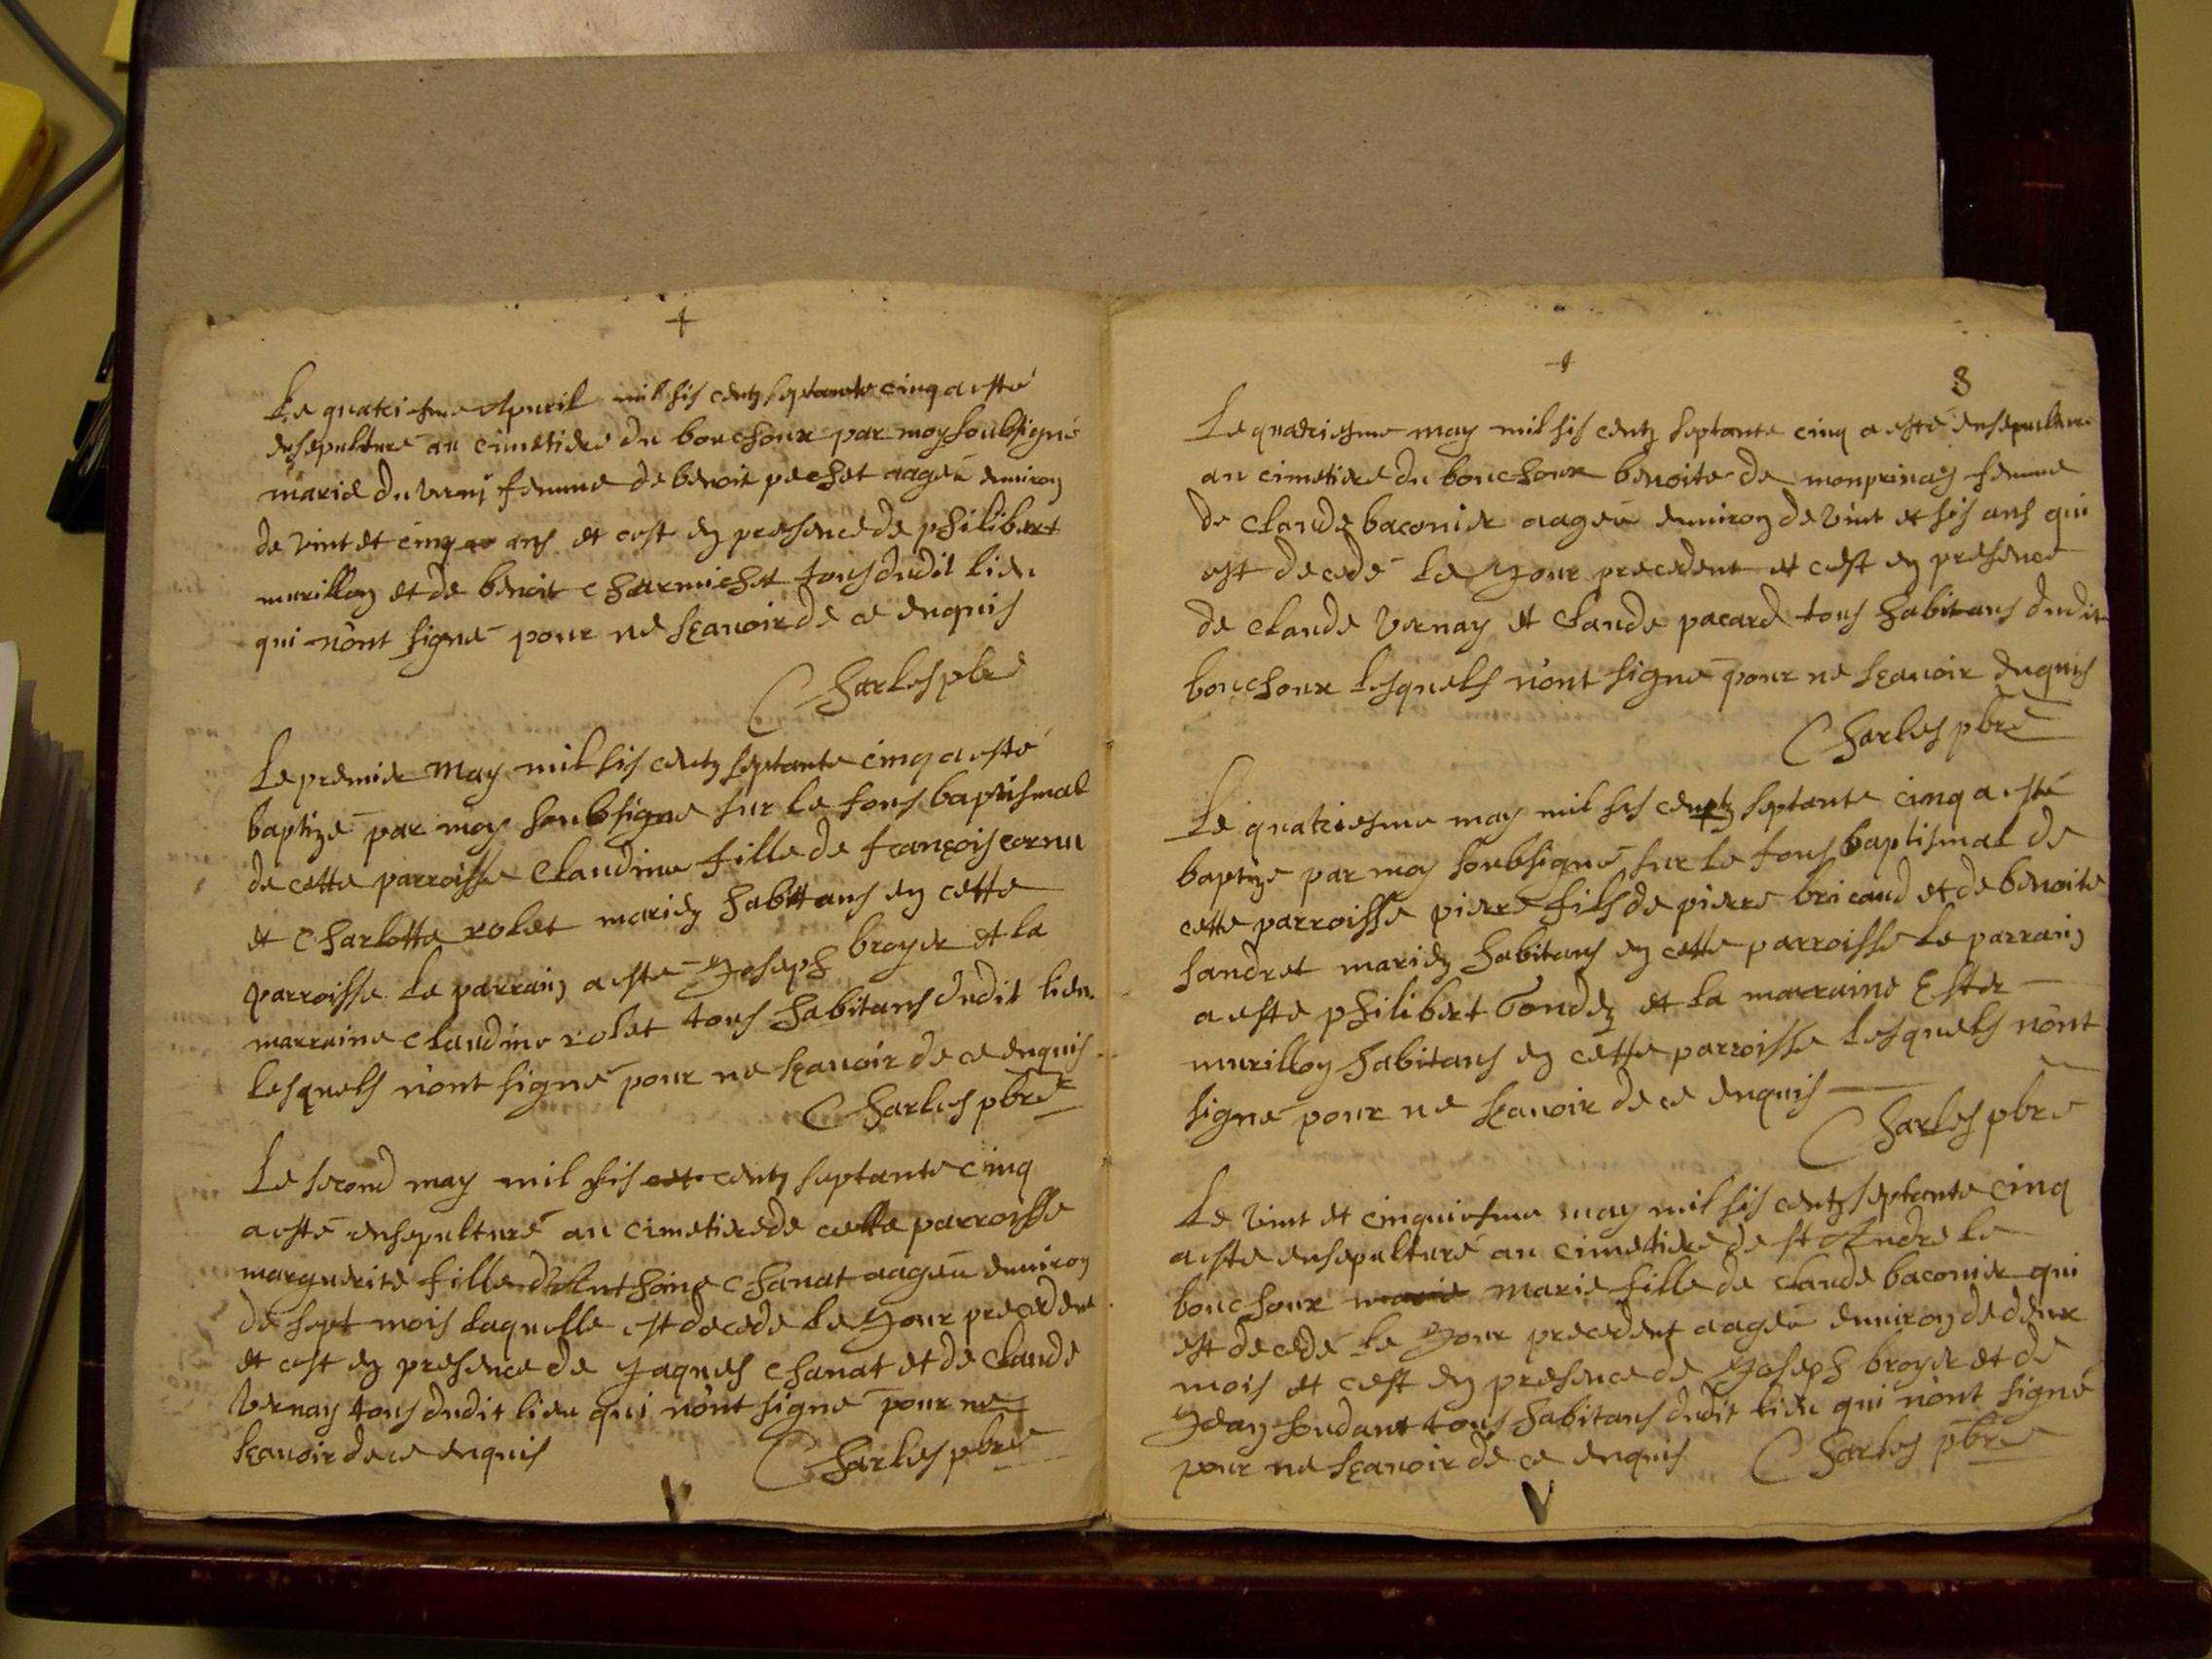 +
Le quatriesme Apuril mil sis centz septante cinq a esté
ensepulturé au cimetiere du bouchoux par moy soubsigné
marie du verny femme de benoit pechet aageé enuiron
de vint et cinq ans et cest en presence de philibert
murillon et de benoit Charmichet tous dudit lieu
qui n'ont signé pour ne sçauoir de ce enquis
Charles pbre
Le premier May mil sis centz septante cinq a esté
baptizé par moy soubsigné sur le fons baptismal
de cette parroisse Claudine fille de françois cornu
et Charlotte rolet mariez habittans en cette
parroisse le parrain a esté Joseph broyer et la
marraine claudine rolet tous habitans dudit lieu
lesquels n'ont signé pour ne sçauoir de ce enquis
Charles pbre
Le second may mil sis centz septante cinq
a esté ensepulturé au cimetiere de cette parroisse
marguerite fille d'Anthoine Chanat aageé enuiron
de sept mois laquelle est decede le your precedent
et cest en presence de Jaques Chanat et de Claude
Vernay tous dudit lieu qui n'ont signé pour ne
sçauoir de ce enquis Charles pbre
V
+
8
Le quatriesme may mil sis centz septante cinq a esté ensepulturé
au cimetiere du bouchoux benoite de monprinay femme
de claude baconier aageé enuiron de vint et sis ans qui
est decedé le your precedent et cest en presence
de claude Vernay et Claude pacard tous habitans dudit
bouchoux lesquels n'ont signé pour ne sçauoir enquis
Charles pbre
Le quatriesme may mil sis centz septante cinq a esté
baptizé par moy soubsigné sur le fons baptismal de
cette parroisse pierre fils de pierre bricaud et de benoite
sandret mariez habitans en cette parroisse le parrain
a esté philibert Gondez et la marraine Ester
murillon habitans en cette parroisse lesquels n'ont
signé pour ne sçauoir de ce enquis
Charles pbre
Le vint et cinquiesme may mil sis centz septante cinq
a esté ensepulturé au cimetiere de st Andre le
bouchoux marie marie fille de claude baconier qui
est decedé le your precedent aageé enuiron de deux
mois et cest en presence de Joseph broyer et de
Jean soudant tous habitans dudit lieu qui n'ont signé
pour ne sçauoir de ce enquis Charles pbre
V